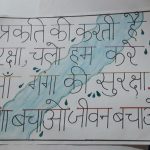 प्रकृति की करती है
रक्षा, चलो हम करे
माँ गंगा की सुरक्षा
बचाओ जीवन बचाओ